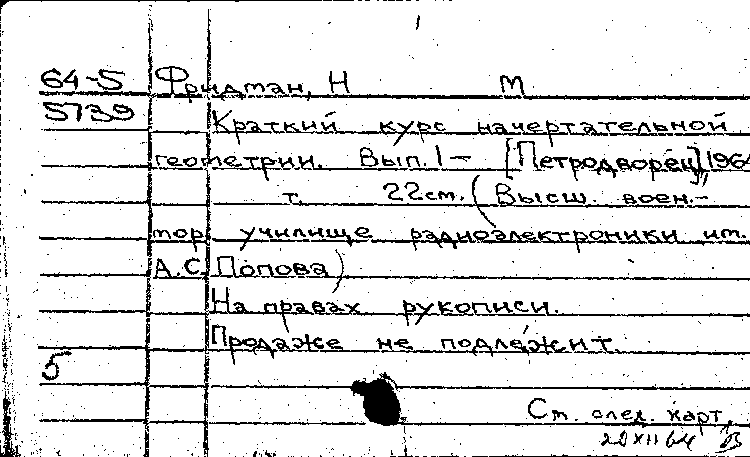 64-5 Фридман, Н М
5739 Краткий курс начертательной
геометрии. Вып. 1 – [Петродворец], 1964
т. 22 см. (Высш. воен.-
мор. училище радиоэлектроники им.
А.С. Попова)
На правах рукописи.
Продаже не подлежит.
5
См. след. карт.